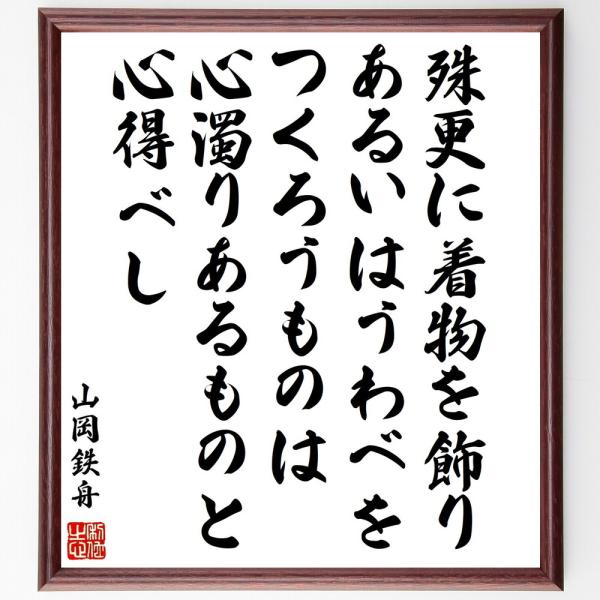 殊更に着物を飾り
あるいはうわべを
つくろうものは
心濁りあるものと
心得べし
山岡鉄舟